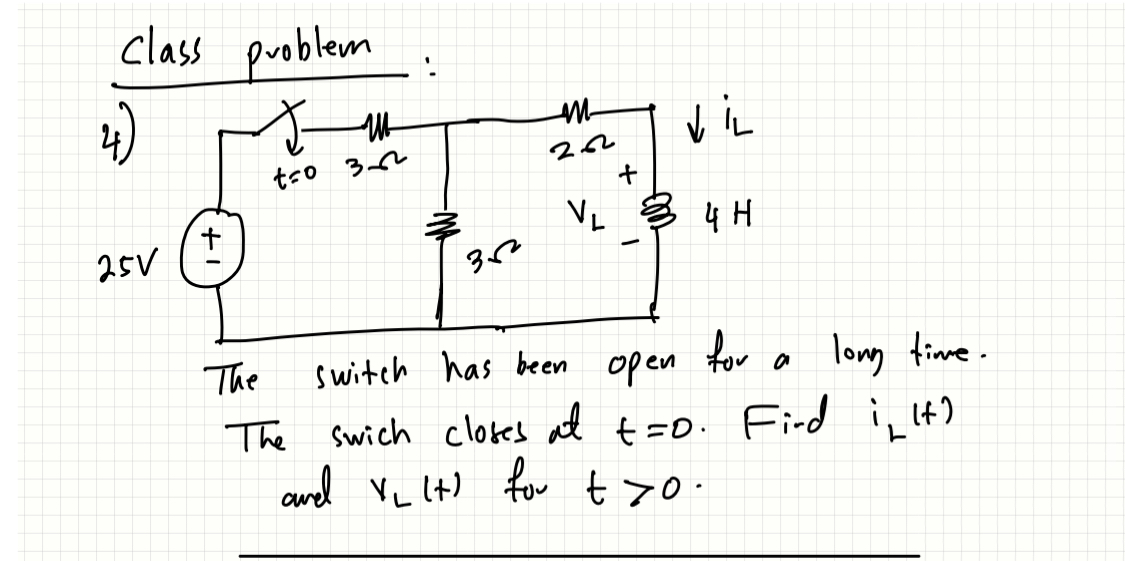 Class problem :
4)
t=0
3Ω
2Ω
↓ iL
+
VL
-
4 H
25V
+
-
3Ω
The switch has been open for a long time.
The swich closes at t=0. Find iL(t)
and VL(t) for t>0.